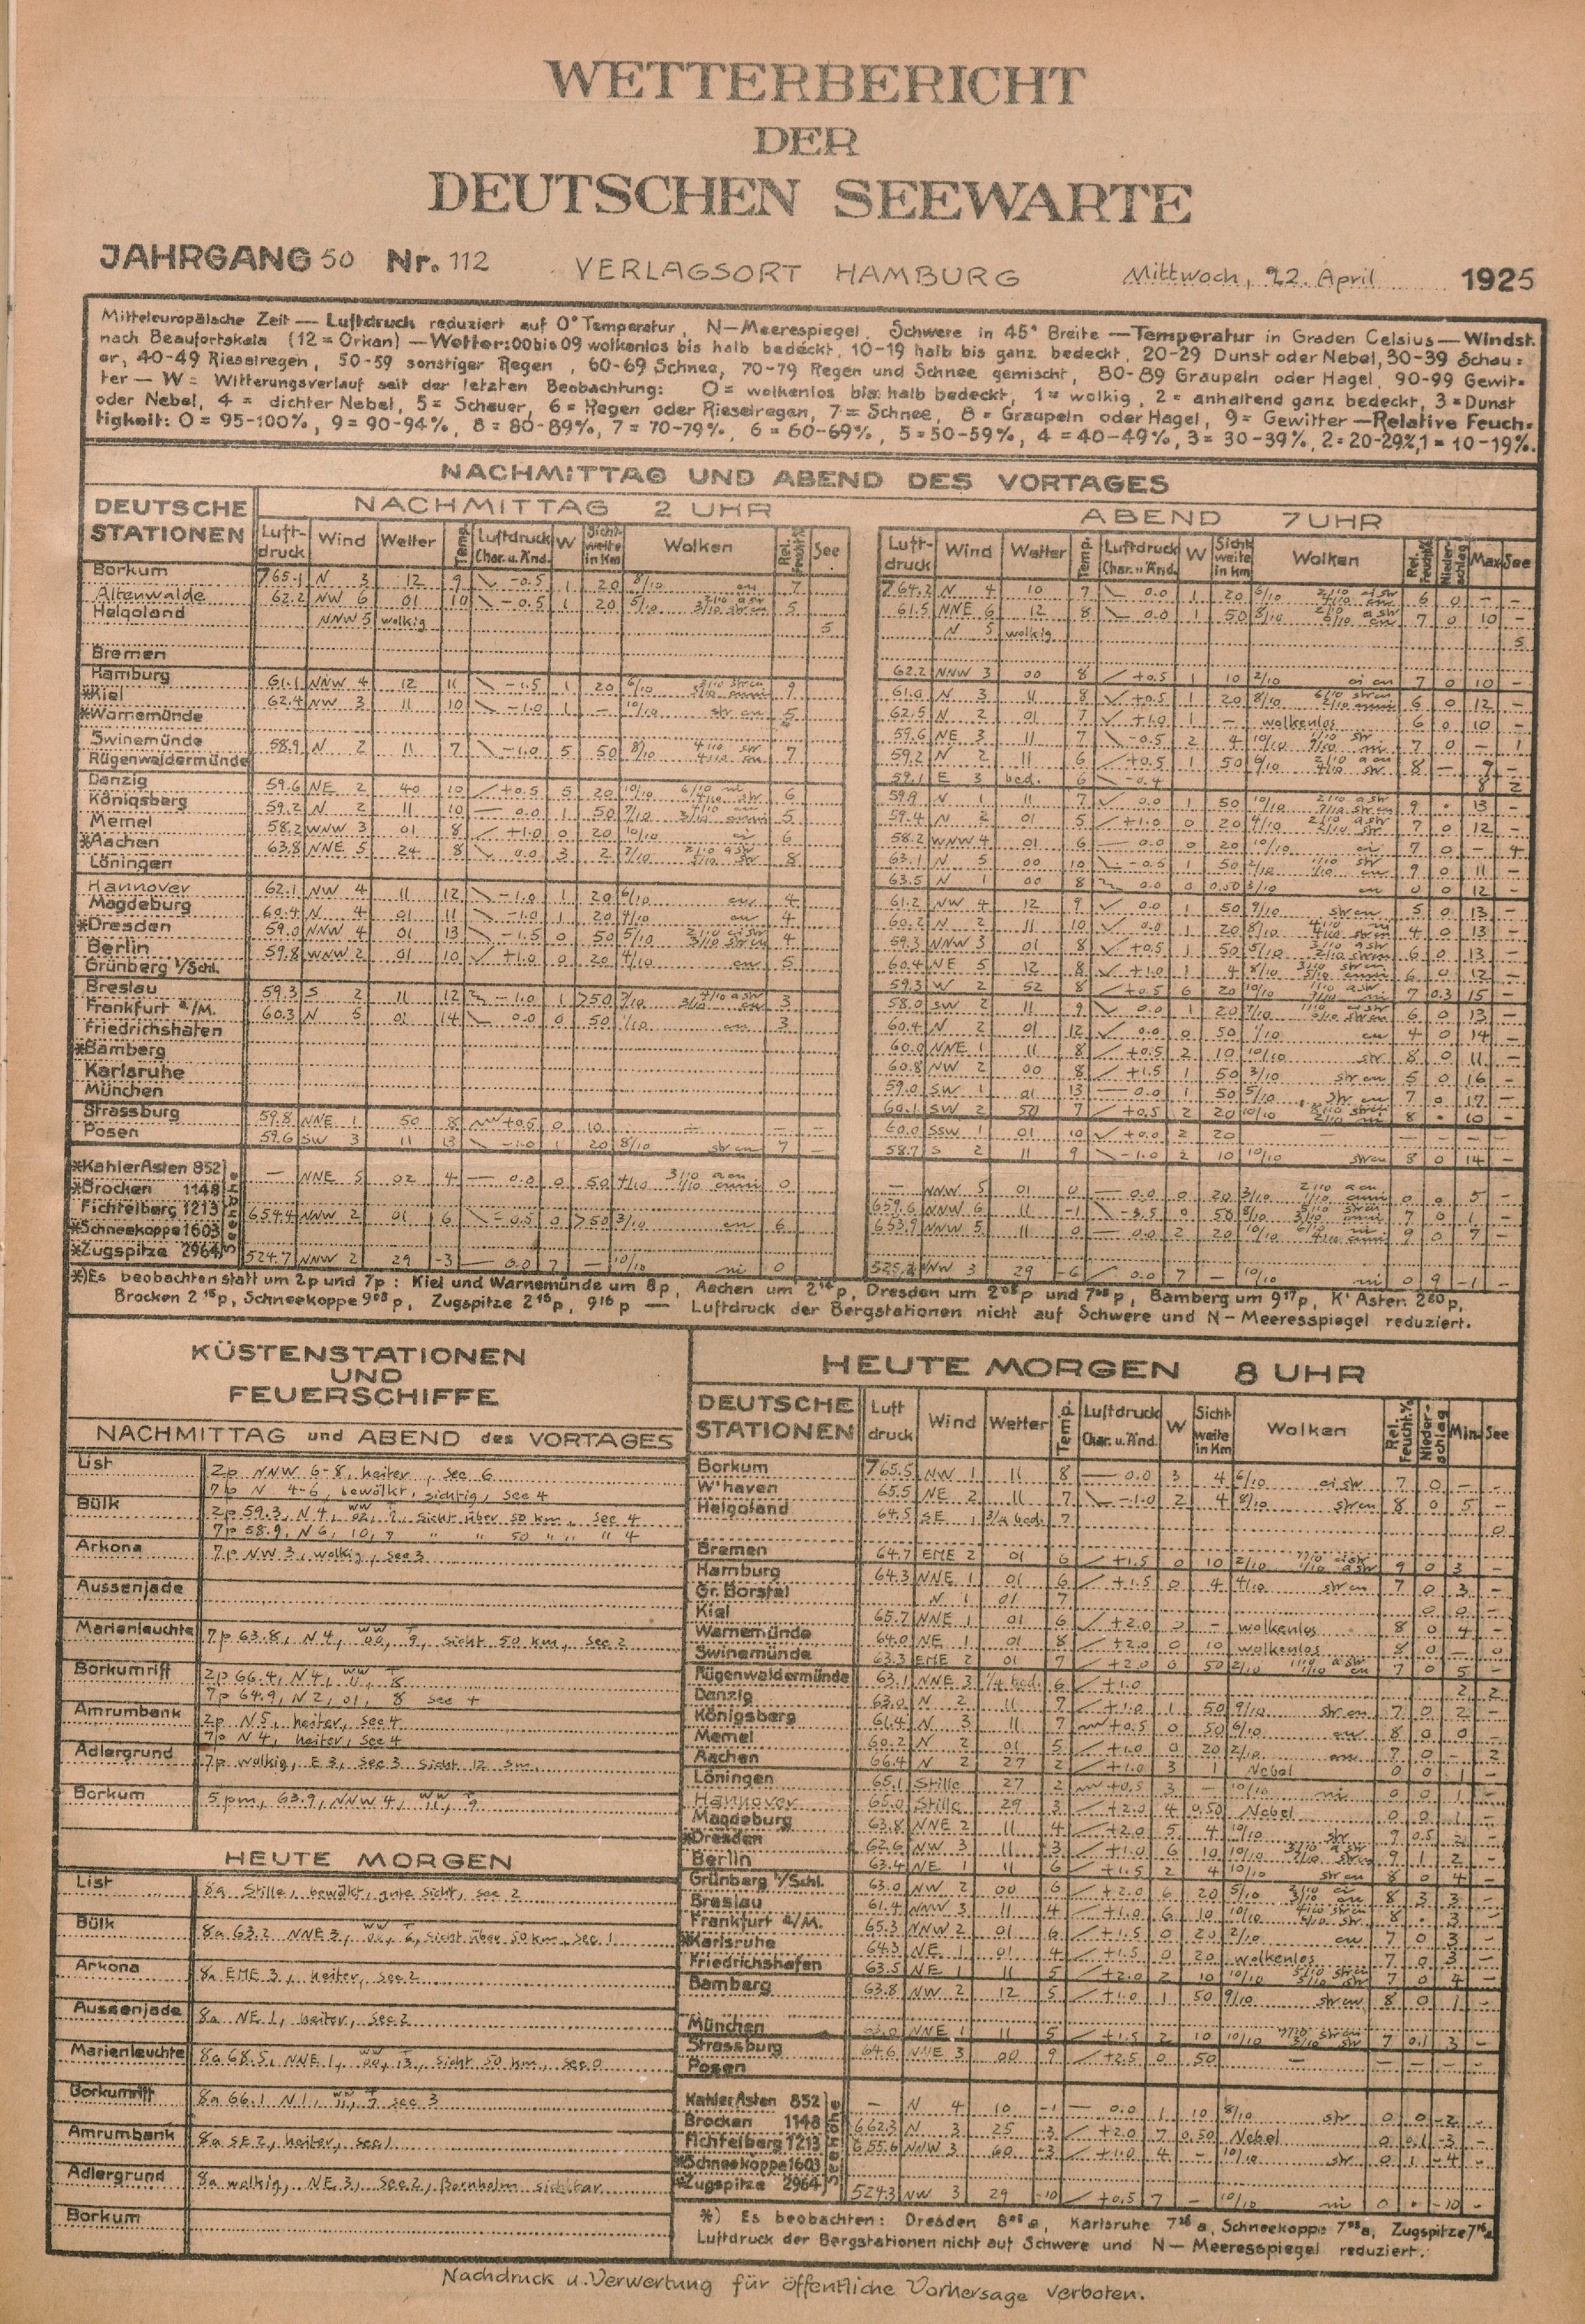 WETTERBERICHT
DER
DEUTSCHEN SEEWARTE
JAHRGANG 50 Nr. 112 VERLAGSORT HAMBURG Mittwoch, 22. April 1925
Mitteleuropäische Zeit — Luftdruck reduziert auf 0° Temperatur, N—Meerespiegel, Schwere in 45° Breite — Temperatur in Graden Celsius — Windst.
nach Beaufortskala (12 = Orkan) — Wetter: 00 bis 09 wolkenlos bis halb bedeckt, 10-19 halb bis ganz bedeckt, 20-29 Dunst oder Nebel, 30-39 Schau=
er, 40-49 Rieselregen, 50-59 sonstiger Regen, 60-69 Schnee, 70-79 Regen und Schnee gemischt, 80-89 Graupeln oder Hagel, 90-99 Gewit=
ter — W = Witterungsverlauf seit der letzten Beobachtung: 0 = wolkenlos bis halb bedeckt, 1 = wolkig, 2 = anhaltend ganz bedeckt, 3 = Dunst
oder Nebel, 4 = dichter Nebel, 5 = Schauer, 6 = Regen oder Rieselregen, 7 = Schnee, 8 = Graupeln oder Hagel, 9 = Gewitter — Relative Feuch=
tigkeit: 0 = 95-100%, 9 = 90-94%, 8 = 80-89%, 7 = 70-79%, 6 = 60-69%, 5 = 50-59%, 4 = 40-49%, 3 = 30-39%, 2 = 20-29%, 1 = 10-19%.
NACHMITTAG UND ABEND DES VORTAGES
DEUTSCHE STATIONEN
NACHMITTAG 2 UHR
Luft-druck Wind Wetter Temp. Luftdruck Char. u. Änd. W Sicht-weite in Km Wolken Rel. Feucht.% See
ABEND 7 UHR
Luft-druck Wind Wetter Temp. Luftdruck Char. u. Änd. W Sicht-weite in Km Wolken Rel. Feucht.% Nieder-schlag Max See
Borkum 765.1 N 3 12 9 -0.5 1 20 8/10 764.2 N 4 10 7 0.0 1 20 6/10
Altenwalde 62.2 NW 6 01 10 -0.5 1 20 5/10 5 61.5 NNE 6 12 8 0.0 1 50
Helgoland NNW 5 wolkig 5 N 5 wolkig 5
Bremen 62.2 NNW 3 00 8 +0.5 1 10 2/10
Hamburg 61.1 NNW 4 12 11 -1.5 1 20 6/10 N 3 11 8 +0.5 1 20 8/10
*Kiel 62.4 NW 3 11 10 -1.0 1 — 10/10 str cu 5 62.5 N 2 01 7 +1.0 1 — wolkenlos
*Warnemünde 59.6 NE 3 11 7 -0.5 2 4 10/10
Swinemünde 58.9 N 2 11 7 -1.0 5 50 8/10 7 59.2 N 2 11 6 +0.5 1 50 6/10
Rügenwaldermünde 59.1 E 3 bed. 6 -0.4 8 2
Danzig 59.6 NE 2 40 10 +0.5 5 20 10/10 6 N 1 11 7 0.0 1 50 10/10
Königsberg 59.2 N 2 11 10 0.0 1 50 7/10 5 59.4 N 2 01 5 +1.0 0 20 4/10
Memel 58.2 WNW 3 01 8 +1.0 0 20 10/10 ci 6 58.2 WNW 4 01 6 0.0 0 20 10/10
*Aachen 63.8 NNE 5 24 8 0.0 3 2 7/10 8 63.1 N 5 00 10 -0.5 1 50
Löningen 63.5 N 1 00 8 0.0 0 0.50 3/10 cu
Hannover 62.1 NW 4 11 12 -1.0 1 20 6/10 cu 4 61.2 NW 4 12 9 0.0 1 50 9/10 str cu
Magdeburg 60.4 N 4 01 11 -1.0 1 20 4/10 cu 4 60.2 N 2 11 10 0.0 1 20 8/10
*Dresden 59.0 NNW 4 01 13 -1.5 0 50 5/10 4 59.3 NNW 3 01 8 +0.5 1 50 5/10
Berlin 59.8 WNW 2 01 10 +1.0 0 20 4/10 cu 5 60.4 NE 5 12 8 +1.0 1 4 8/10
Grünberg i/Schl. 59.3 W 2 52 8 +0.5 6 20 10/10 7 0.3 15 —
Breslau 59.3 S 2 11 12 -1.0 1 >50 7/10 3 58.0 SW 2 11 9 0.0 1 20 7/10
Frankfurt a/M. 60.3 N 5 01 14 0.0 0 50 1/10 cu 3 60.4 N 2 01 12 0.0 0 50 1/10 cu
Friedrichshafen 60.0 NNE 1 11 8 +0.5 2 10 10/10 str
*Bamberg 60.8 NW 2 00 8 +1.5 1 50 3/10 str cu 5 0 16 —
Karlsruhe 59.0 SW 1 01 13 0.0 1 50 5/10 str cu 7 0 17 —
München 60.1 SW 2 50 7 +0.5 2 20 10/10
Strassburg 59.8 NNE 1 50 8 +0.5 0 10 — — — 60.0 SSW 1 01 10 +0.0 2 20 — — — — —
Posen 59.6 SW 3 11 13 -1.0 1 20 8/10 str cu 7 — 58.7 S 2 11 9 -1.0 2 10 10/10 str cu 8 0 14 —
Seehöhe
*Kahler Asten 852 — NNE 5 02 4 0.0 0 50 4/10 0 — NNW 5 01 0 0.0 0 20 3/10
*Brocken 1148 659.6 NNW 6 11 -1 0 50 8/10
Fichtelberg 1213 654.4 NNW 2 01 6 -0.5 0 >50 3/10 cu 6 653.9 NNW 5 11 0 0.0 2 20 10/10
*Schneekoppe 1603
*Zugspitze 2964 524.7 NNW 2 29 -3 0.0 7 — 10/10 ni 0 NW 3 29 -6 0.0 7 — 10/10 ni 0 9 -1 —
*) Es beobachten statt um 2p und 7p: Kiel und Warnemünde um 8p, Aachen um 2¹⁴p, Dresden um 2⁰⁸p und 7⁰⁸p, Bamberg um 9¹⁷p, K' Asten
Brocken 2¹⁵p, Schneekoppe 9⁰³p, Zugspitze 2¹⁶p, 9¹⁶p — Luftdruck der Bergstationen nicht auf Schwere und N—Meeresspiegel reduziert.
KÜSTENSTATIONEN
UND
FEUERSCHIFFE
NACHMITTAG und ABEND des VORTAGES
List 2p NNW 6-8, heiter, See 6
7p N 4-6, bewölkt, sichtig, See 4
Bülk 2p 59.3, N 4, Sicht über 50 km, See 4
7p 58.9, N 6, 10, 7 " " 50 " " " 4
Arkona 7p NW 3, wolkig, See 3
Aussenjade
Marienleuchte 7p 63.8, N 4, ww 00, T 9, Sicht 50 km, See 2
Borkumriff 2p 66.4, N 4, ww 11, T 8
7p 64.9, N 2, 01, 8 See
Amrumbank 2p N 5, heiter, See 4
7p N 4, heiter, See 4
Adlergrund 7p wolkig, E 3, See 3 Sicht 12 sm.
Borkum 5 pm, 63.9, NNW 4, ww 11, T 9
HEUTE MORGEN
List 8a Stille, bewölkt, gute Sicht, See 2
Bülk 8a 63.2 NNE 3, ww 00, T 6, Sicht über 50 km, See 1
Arkona 8a ENE 3, heiter, See 2
Aussenjade 8a NE 1, heiter, See 2
Marienleuchte 8a 68.5, NNE 1, ww 00, T 13, Sicht 50 km, See 0
Borkumriff 8a 66.1 N 1, ww 11, T 7 See 3
Amrumbank 8a SE 2, heiter, See 1
Adlergrund 8a wolkig, NE 3, See 2, Bornholm sichtbar
Borkum
HEUTE MORGEN 8 UHR
DEUTSCHE STATIONEN Luft druck Wind Wetter Temp. Luftdruck Char. u. Änd. W Sicht weite in Km Wolken Rel. Feucht.% Nieder-schlag Min. See
Borkum 765.5 NW 1 11 8 0.0 3 4 6/10 ci str 7 0 — —
W'haven 65.5 NE 2 11 7 -1.0 2 4 8/10 str cu 8 0 5 —
Helgoland 64.5 SE 1 3/4 bed. 7 0
Bremen 64.7 ENE 2 01 6 +1.5 0 10 2/10 9 0 3 —
Hamburg 64.3 NNE 1 01 6 +1.5 0 4 4/10 str cu 7 0 3 —
Gr. Borstel N 1 01 7 0 0 —
Kiel 65.7 NNE 1 01 6 +2.0 — wolkenlos 8 0 4 —
Warnemünde 64.0 NE 1 01 8 +2.0 0 10 wolkenlos 8 0 — 0
Swinemünde 63.3 ENE 2 01 7 +2.0 0 50 2/10 7 0 5 —
Rügenwaldermünde 63.1 NNE 3 1/4 bed. 6 +1.0 2 2
Danzig 63.0 N 2 11 7 +1.0 1 50 9/10 str cu 7 0 2 —
Königsberg 61.4 N 3 11 7 +0.5 0 50 6/10 cu 8 0 0 —
Memel 60.2 N 2 01 5 +1.0 0 20 2/10 7 0 — 2
Aachen 66.4 N 2 27 2 +1.0 3 1 Nebel 0 0 1 —
Löningen 65.1 Stille 27 2 +0.5 3 — 10/10 ni 0 0 1 —
Hannover 65.0 Stille 29 3 +2.0 4 0.50 Nebel 0 0 1 —
Magdeburg 63.8 NNE 2 11 4 +2.0 5 4 10/10 str 9 0.5 2 —
*Dresden 62.6 NW 3 11 3 +1.0 6 10 10/10 9 1 2 —
Berlin 63.4 NE 1 11 6 +1.5 2 4 10/10 str cu 8 0 4 —
Grünberg i/Schl. 63.0 NW 2 00 6 +2.0 6 20 5/10 8 3 3 —
Breslau 61.4 NNW 3 11 4 +1.0 6 10 10/10 8 . 3 —
Frankfurt a/M. 65.3 NNW 2 01 6 +1.5 0 20 2/10 cu 7 0 3 —
*Karlsruhe 64.3 NE 1 01 4 +1.5 0 20 wolkenlos 7 0 3 —
Friedrichshafen 63.5 NE 1 11 5 +2.0 2 10 10/10 7 0 4 —
Bamberg 63.8 NW 2 12 5 +1.0 1 50 9/10 str cu 8 0 1 —
München NNE 1 11 5 +1.5 2 10 10/10 7 0.1 3 —
Strassburg 64.6 NNE 3 00 9 +2.5 0 50 — — — — —
Posen
Seehöhe
Kahler Asten 852 — N 4 10 -1 0.0 1 10 8/10 str 0 0 -2 —
Brocken 1148 662.3 N 3 25 -3 +2.0 7 0.50 Nebel 0 0.1 -3 —
Fichtelberg 1213 655.6 NNW 3 60 -3 +1.0 4 — 10/10 str 0 1 -4 —
*Schneekoppe 1603
*Zugspitze 2964 524.3 NW 3 29 -10 +0.5 7 — 10/10 ni 0 . -10 —
*) Es beobachten: Dresden 8⁰⁸a, Karlsruhe 7²⁶a, Schneekoppe 7⁰³a, Zugspitze 7¹⁶a
Luftdruck der Bergstationen nicht auf Schwere und N—Meeresspiegel reduziert.
Nachdruck u. Verwertung für öffentliche Vorhersage verboten.